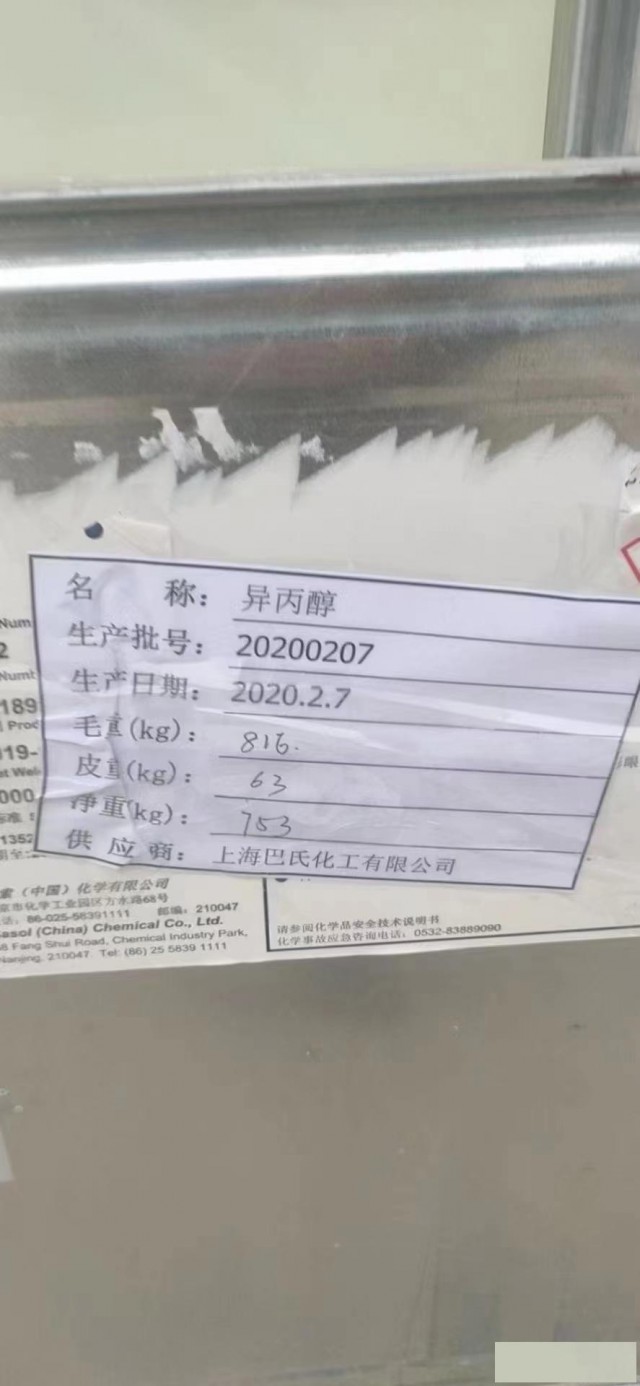 名 称： 异丙醇
生产批号： 20200207
生产日期： 2020.2.7
毛重(kg)： 816.
皮重(kg)： 63
净重(kg)： 753
供 应 商： 上海巴氏化工有限公司
Num
2
Numb
189
Prod
019-
000
1352
索（中国）化学有限公司
京市化学工业园区方水路68号
话：86-025-58391111 邮编：210047
asol (China) Chemical Co., Ltd.
8 Fang Shui Road, Chemical Industry Park,
Nanjing, 210047 Tel: (86) 25 5839 1111
请参阅化学品安全技术说明书
化学事故应急咨询电话：0532-83889090